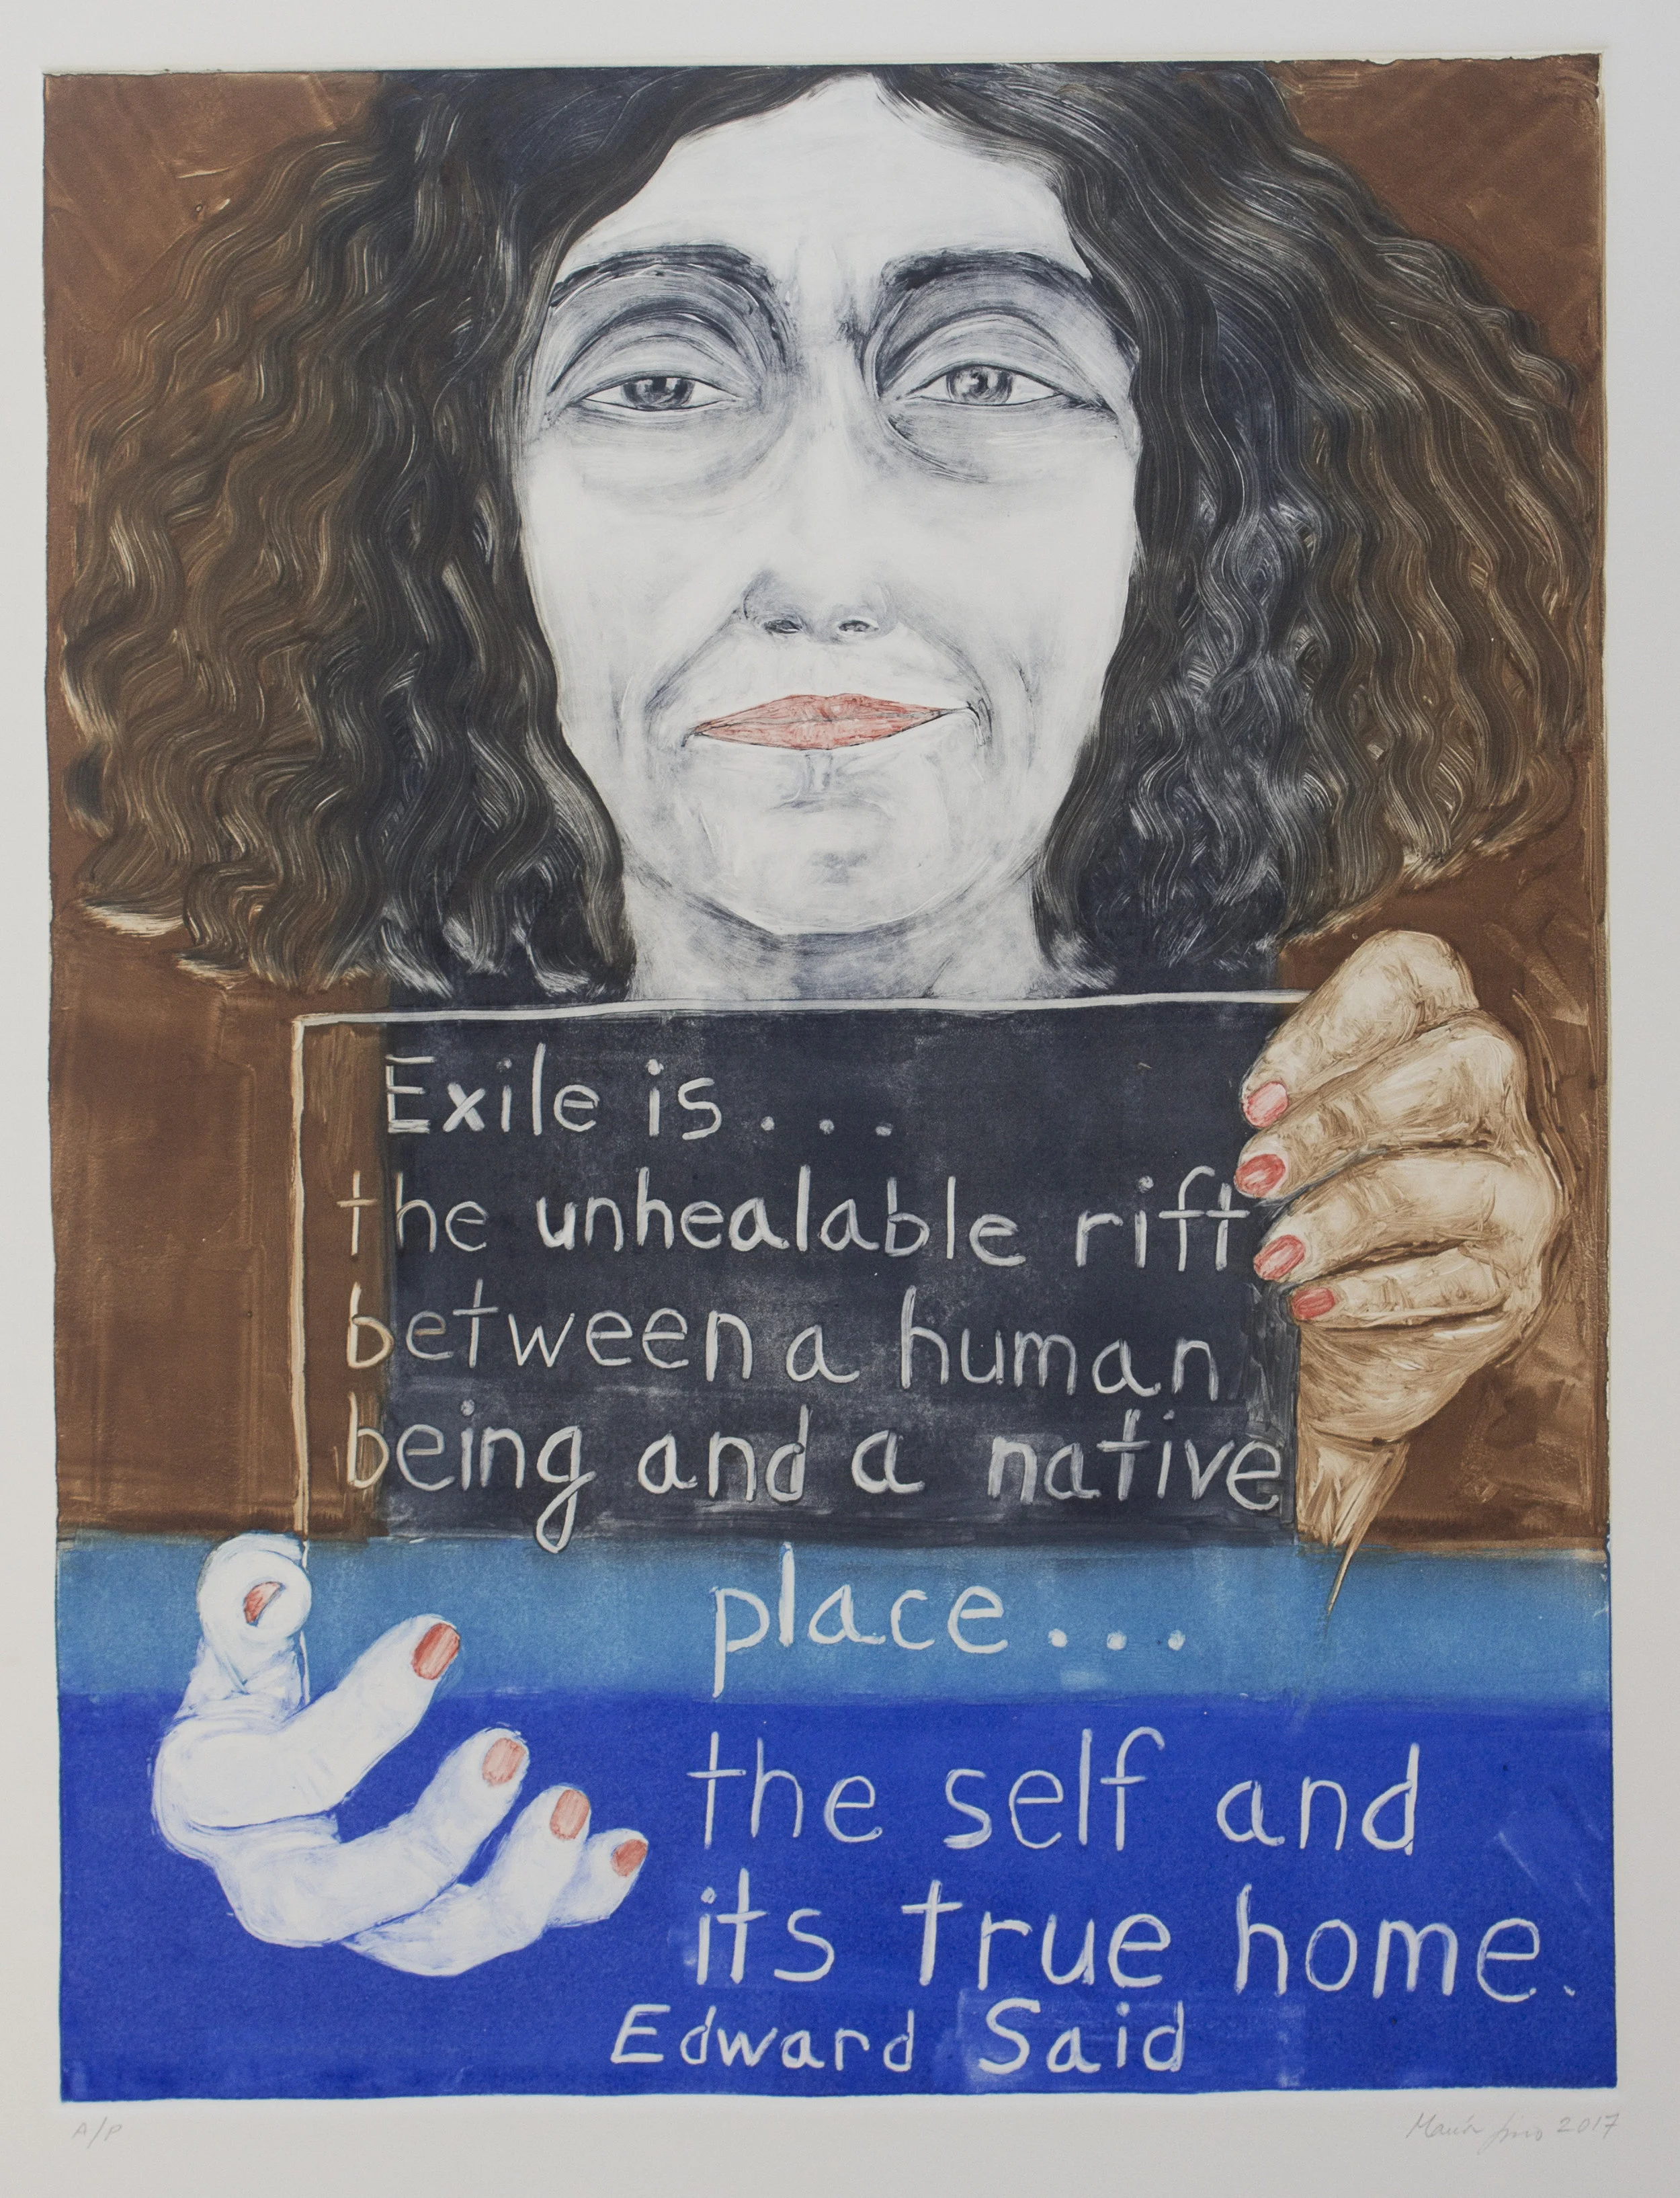 Exile is...
the unhealable rift
between a human
being and a native
place...
the self and
its true home.
Edward Said
A/P
María 2017